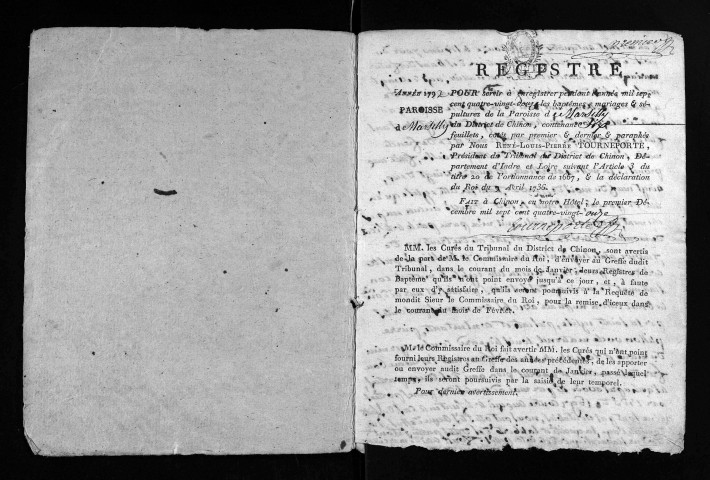 REGISTRE
ANNÉE 1792 POUR servir à enregistrer pendant l'année mil sept
cent quatre-vingt-douze les baptêmes & mariages & sé-
PAROISSE pultures de la Paroisse de Marsilly
de Marsilly du District de Chinon, contenant
feuillets, cotés par premier & dernier & paraphés
par Nous RENÉ-LOUIS-PIERRE TOURNEPORTE,
Président du Tribunal du District de Chinon, Dé-
partement d'Indre et Loire suivant l'Article 3 du
titre 20 de l'ordonnance de 1667, & la déclaration
du Roi du 9 Avril 1736.
FAIT à Chinon, en notre Hôtel; le premier Dé-
cembre mil sept cent quatre-vingt-onze
Tourneporte
MM. les Curés du Tribunal du District de Chinon, sont avertis
de la part de M. le Commissaire du Roi, d'envoyer au Greffe dudit
Tribunal, dans le courant du mois de Janvier, leurs Registres de
Baptême qu'ils n'ont point envoyé jusqu'à ce jour, et, à faute
par eux d'y satisfaire, qu'ils seront poursuivis à la Requête de
mondit Sieur le Commissaire du Roi, pour la remise d'iceux dans
le courant du mois de Février.
M. le Commissaire du Roi fait avertir MM. les Curés qui n'ont point
fourni leurs Registres au Greffe des années précédentes, de les apporter
ou envoyer audit Greffe dans le courant de Janvier, passé lequel
temps, ils seront poursuivis par la saisie de leur temporel.
Pour dernier avertissement.